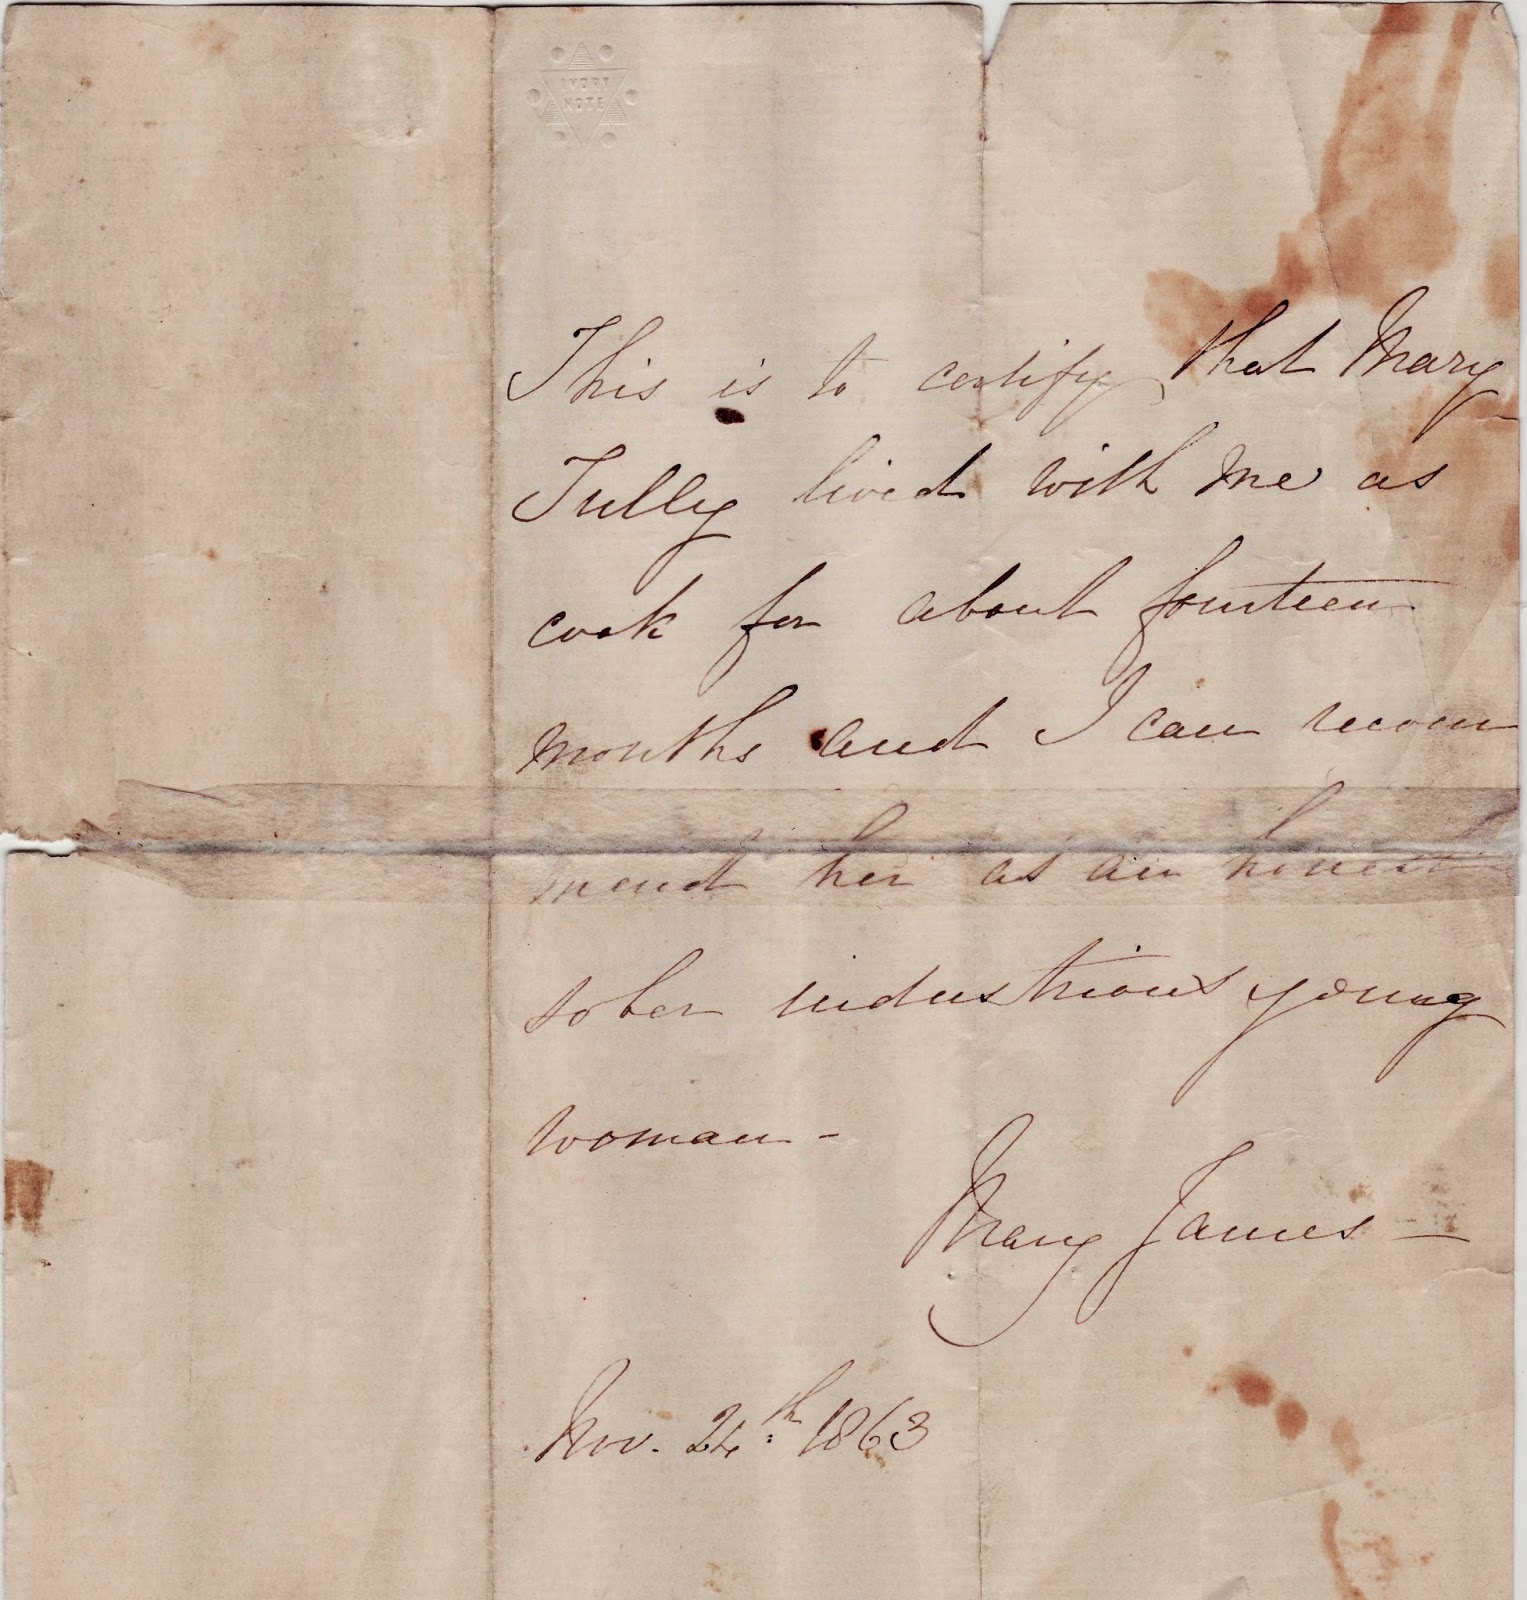 IVORY
NOTE
This is to certify that Mary
Tully lived with me as
cook for about fourteen
months and I can recom
mend her as an honest
sober industrious young
woman -
Mary James —
Nov. 24th 1863